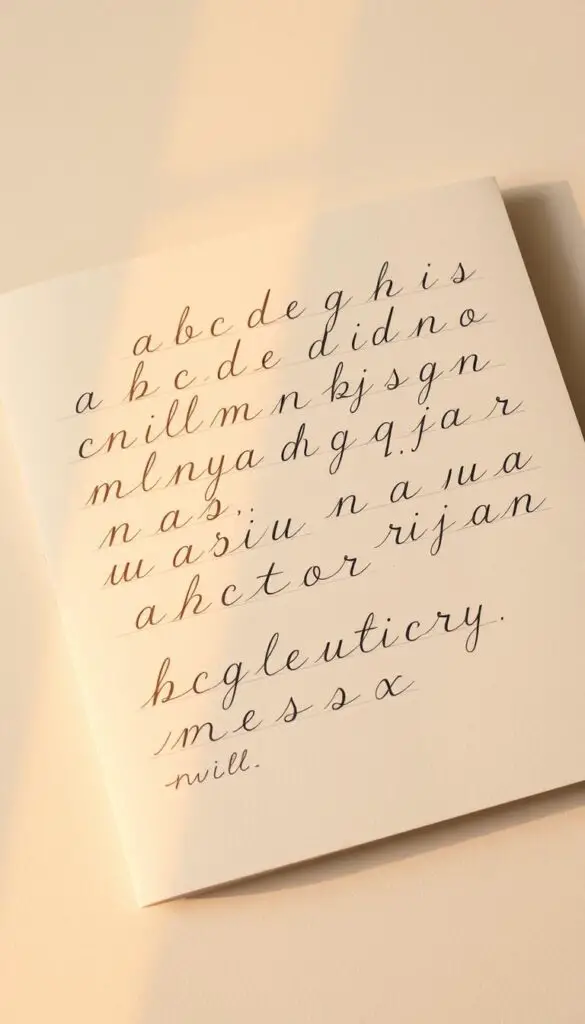 a b c d e g h i s
a b c d e d i d n o
c n i l l m n k j s g n
m l n y a d h g q . j a r
n a s . .
u a s i u n a u a
a h c t o r r i j a n
b c g l e u t i c r y .
m e s s x
-nvill.